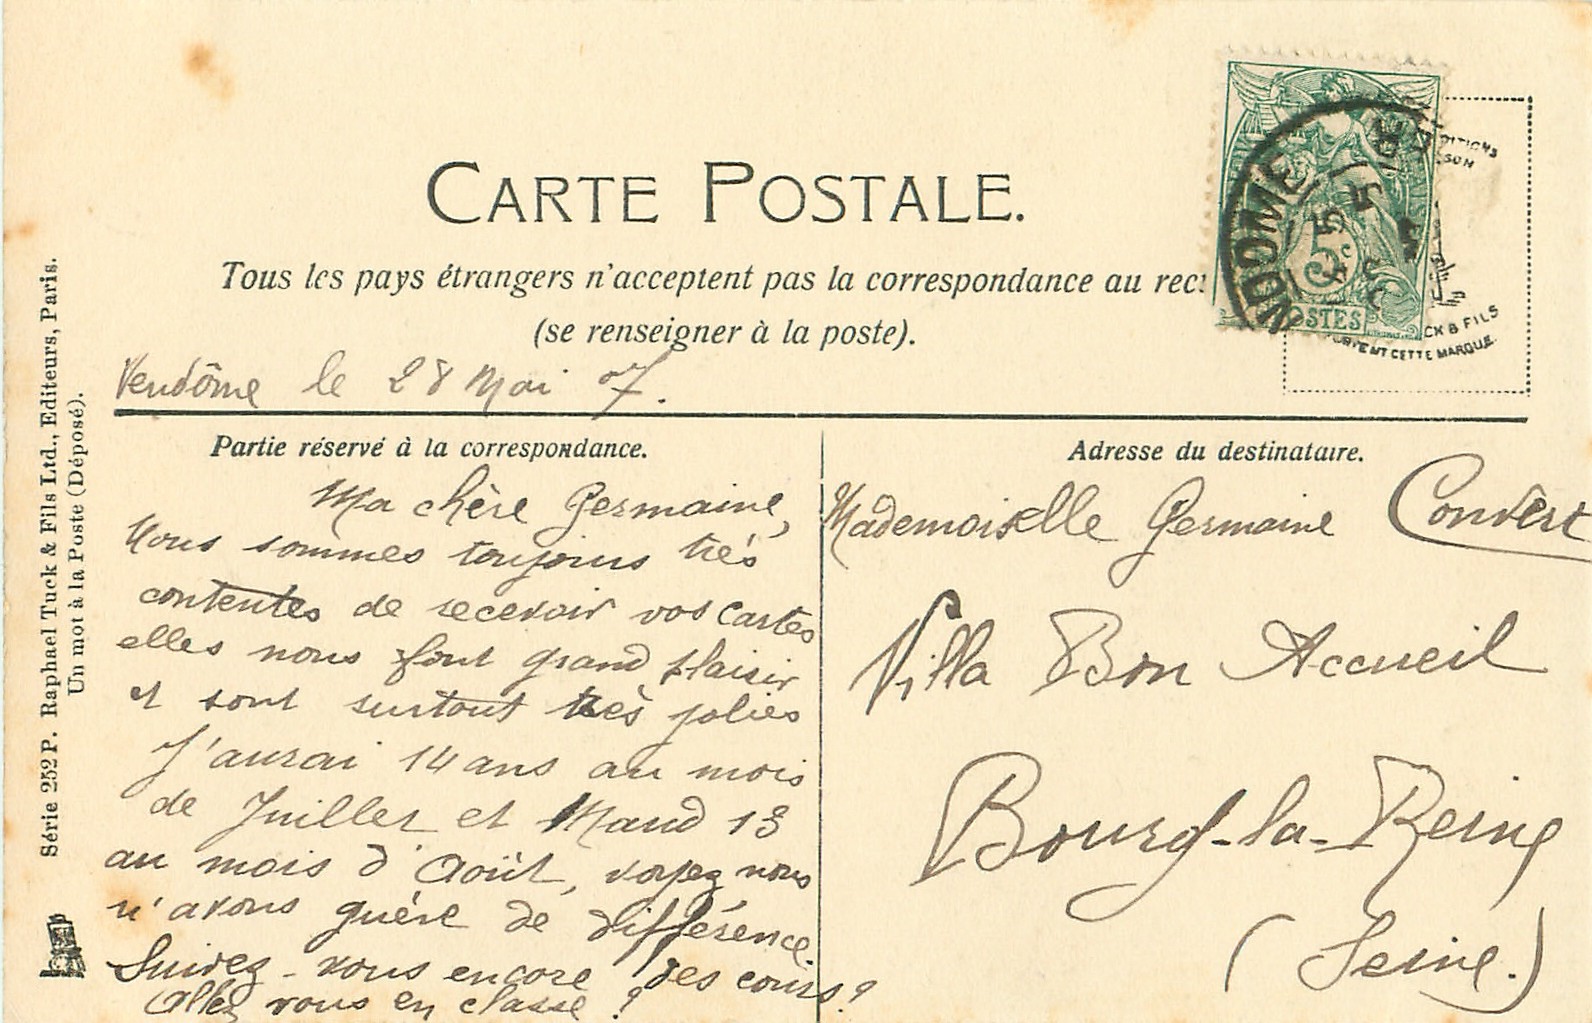 CARTE POSTALE.
Tous les pays étrangers n'acceptent pas la correspondance au rec
(se renseigner à la poste).
Vendôme le 28 Mai 07.
NDOME
5c
OSTES
DITIONS
SON
CK & FILS
CETTE MARQUE
Série 252 P. Raphael Tuck & Fils Ltd., Editeurs, Paris.
Un mot à la Poste (Déposé).
Partie réservé à la correspondance.
Ma chère Germaine,
Nous sommes toujours très
contentes de recevoir vos cartes
elles nous font grand plaisir
et sont surtout très jolies
J'aurai 14 ans au mois
de Juillet et Maud 13
au mois d'Août, voyez nous
n'avons guère de différence
Suivez-vous encore des cours?
Allez vous en classe?
Adresse du destinataire.
Mademoiselle Germaine Convert
Villa Bon Accueil
Bourg-la-Reine
(Seine.)